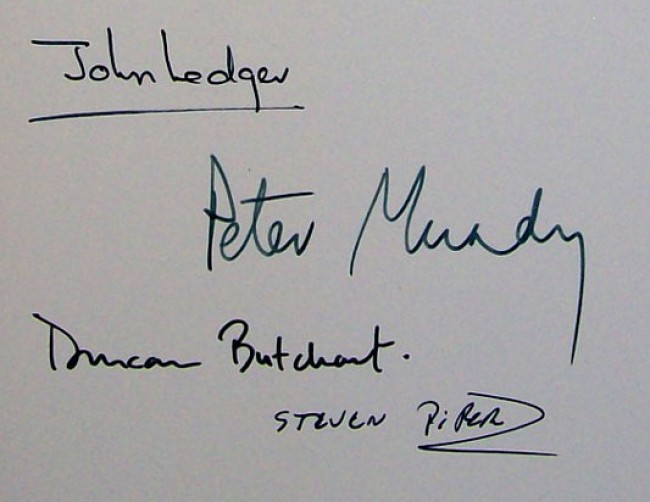 John Ledger
Peter Mundy
Duncan Butchart.
STEVEN PiPER